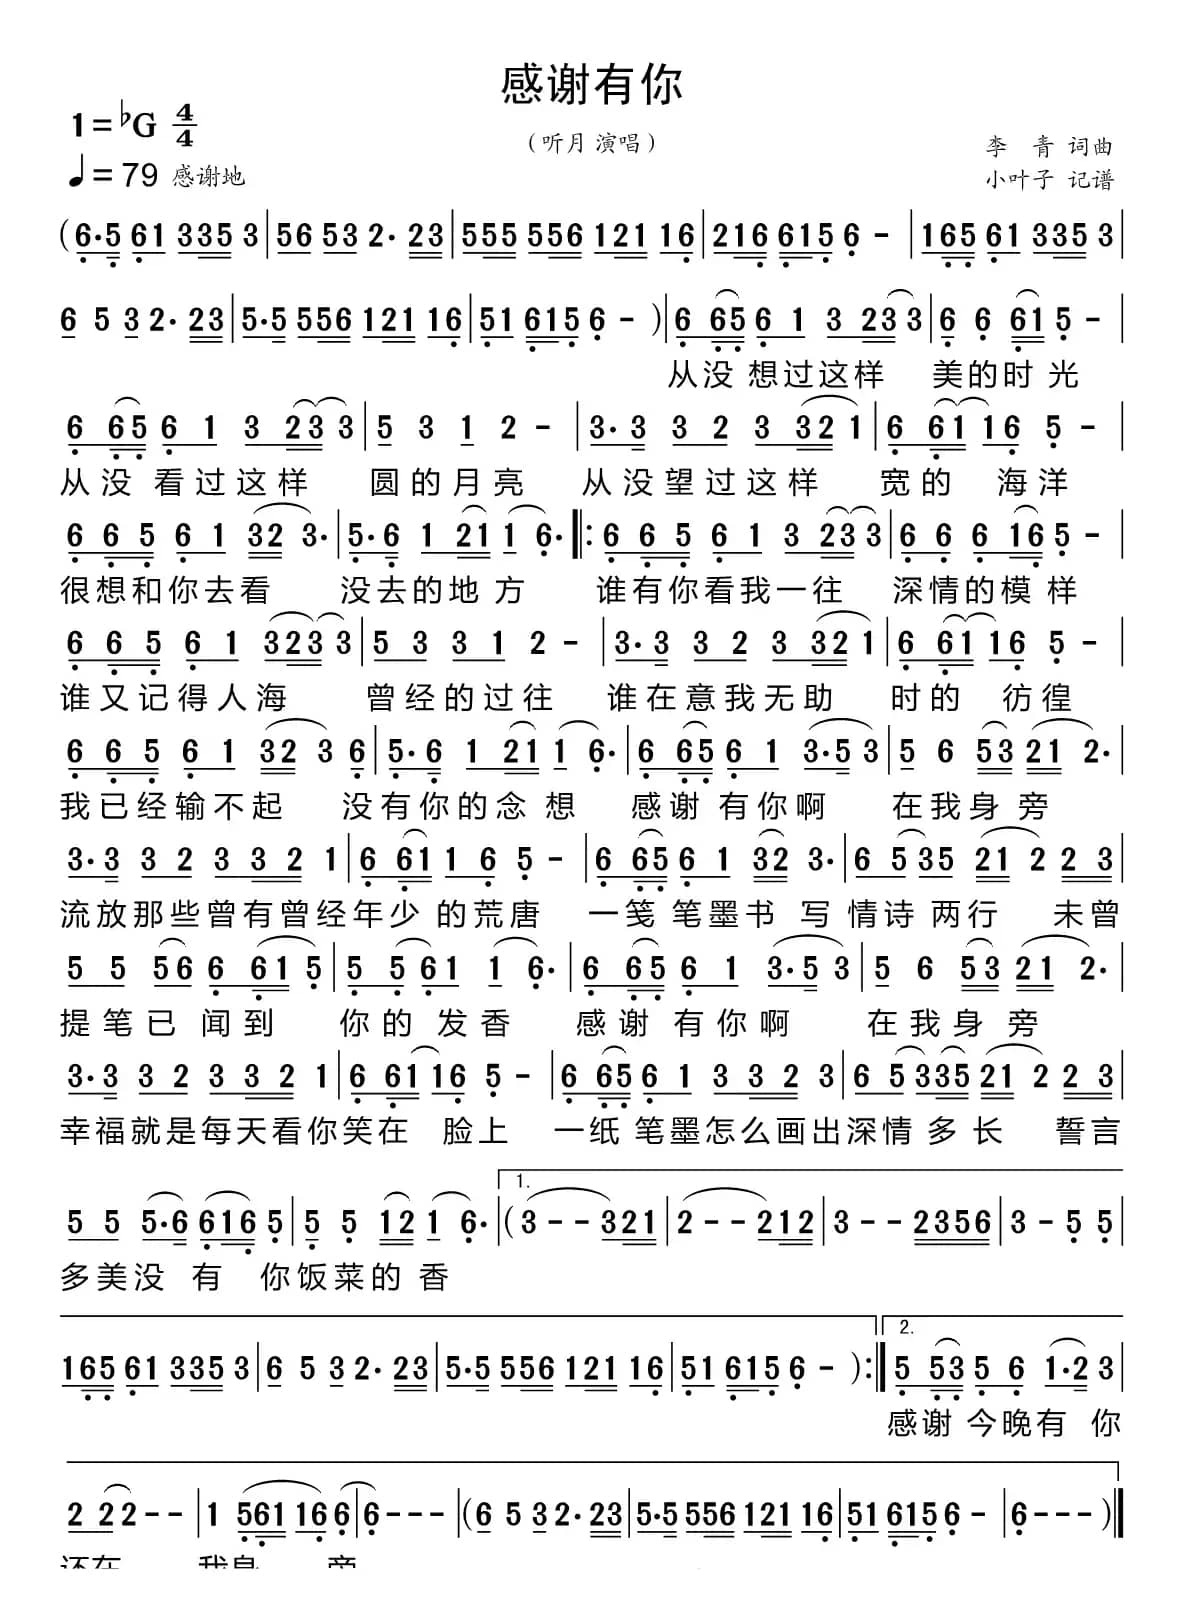 感谢有你
1=♭G 4/4
(听月 演唱)
李 青 词曲
♩=79 感谢地
小叶子 记谱
(6·5 61 335 3|56 53 2· 23|555 556 121 16|216 615 6 -|165 61 335 3|
6 5 3 2· 23|5·5 556 121 16|51 615 6 - )|6 65 6 1 3 23 3|6 6 61 5 -|
从没 想过这样 美的时 光
6 65 6 1 3 23 3|5 3 1 2 -|3·3 3 2 3 321|6 61 16 5 -|
从没 看过这样 圆的月亮 从没望过这样 宽的 海洋
6 6 5 6 1 32 3·|5·6 1 21 1 6·‖:6 6 5 6 1 3 23 3|6 6 6 16 5 -|
很想和你去看 没去的地 方 谁有你看我一往 深情的模 样
6 6 5 6 1 323 3|5 3 3 1 2 -|3·3 3 2 3 321|6 61 16 5 -|
谁又记得人海 曾经的过往 谁在意我无助 时的 彷徨
6 6 5 6 1 32 3 6|5·6 1 21 1 6·|6 65 6 1 3·5 3|5 6 53 21 2·|
我已经输不起 没有你的念 想 感谢 有你啊 在我身 旁
3·3 3 2 3 3 2 1|6 61 1 6 5 -|6 65 6 1 32 3·|6 5 35 21 2 2 3|
流放那些曾有曾经年少 的荒唐 一笺 笔墨书 写 情诗 两行 未曾
5 5 56 6 61 5|5 5 61 1 6·|6 65 6 1 3·5 3|5 6 53 21 2·|
提笔已 闻到 你的 发香 感谢 有你啊 在我身 旁
3·3 3 2 3 3 2 1|6 61 16 5 -|6 65 6 1 3 3 2 3|6 5 335 21 2 2 3|
幸福就是每天看你笑在 脸上 一纸 笔墨怎么画出深情 多 长 誓言
1.
5 5 5·6 616 5|5 5 12 1 6·|(3 - - 321|2 - - 212|3 - - 2356|3 - 5 5|
多美没 有 你饭菜的 香
2.
165 61 335 3|6 5 3 2· 23|5·5 556 121 16|51 615 6 - ):‖5 53 5 6 1·2 3|
感谢 今晚有 你
2 2 2 - -|1 561 16 6|6 - - -|(6 5 3 2· 23|5·5 556 121 16|51 615 6 -|6 - - - )‖
还在 我身 旁